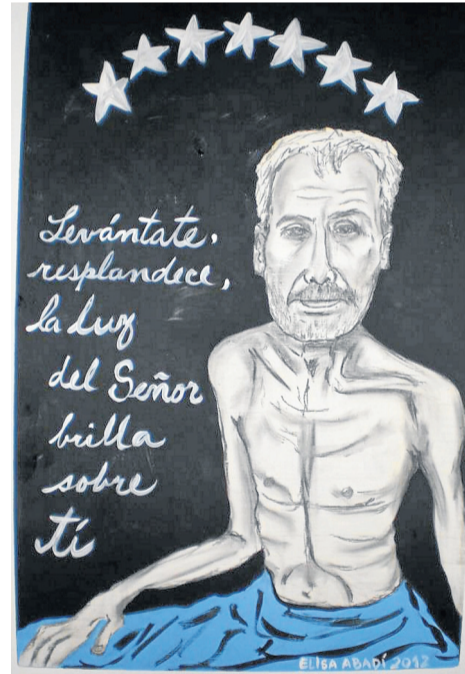 Levántate,
resplandece,
la luz
del Señor
brilla
sobre
tí
ELISA ABADÍ 2012